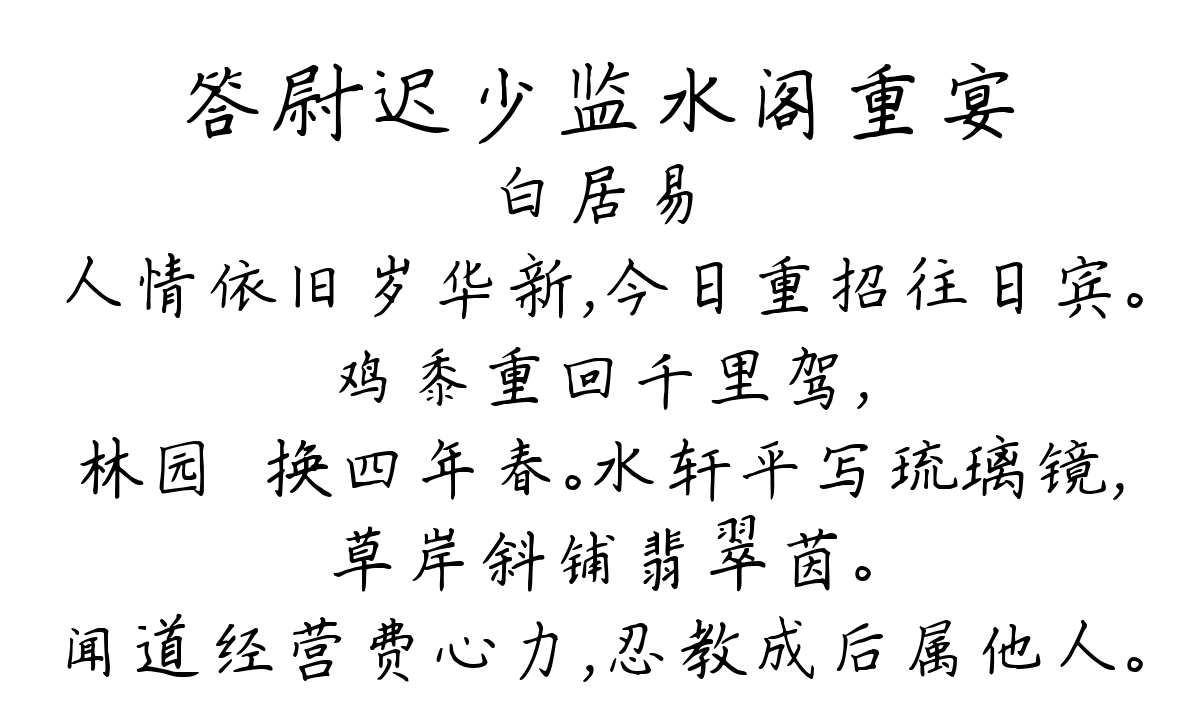 答尉迟少监水阁重宴
白居易
人情依旧岁华新,今日重招往日宾。
鸡黍重回千里驾,
林园 换四年春。水轩平写琉璃镜,
草岸斜铺翡翠茵。
闻道经营费心力,忍教成后属他人。